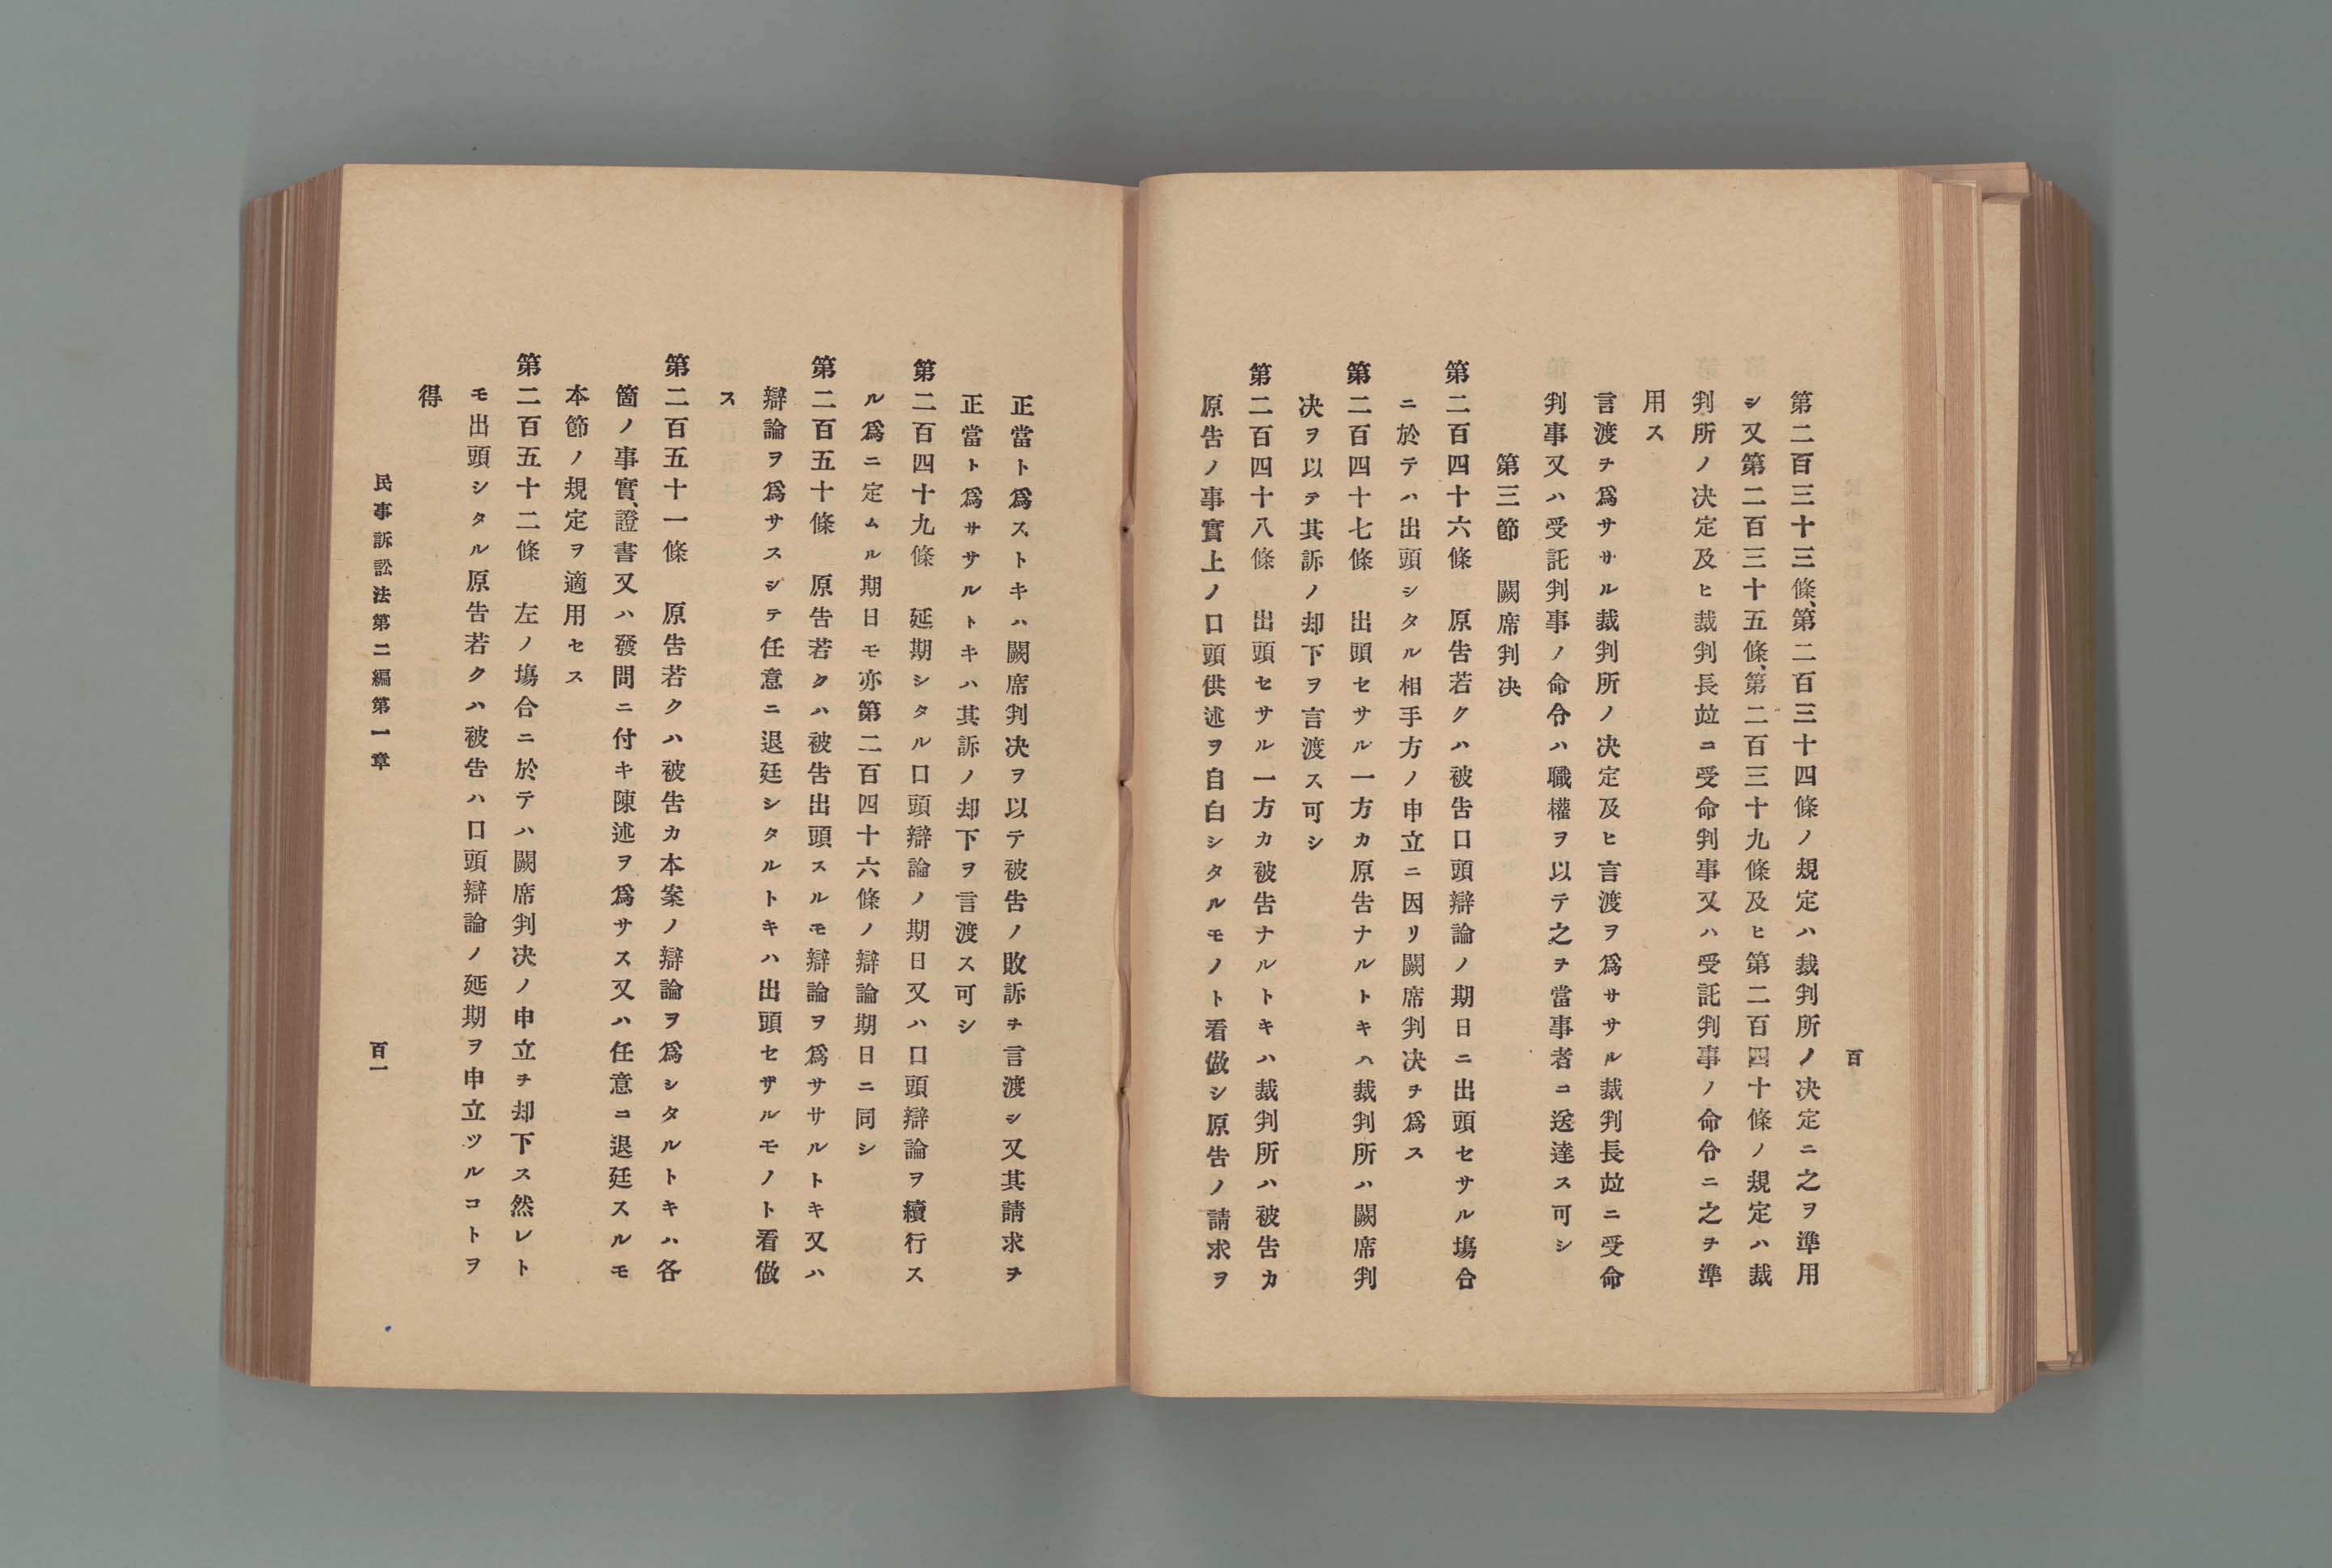 百
第二百三十三條、第二百三十四條ノ規定ハ裁判所ノ决定ニ之ヲ準用
シ又第二百三十五條、第二百三十九條及ヒ第二百四十條ノ規定ハ裁
判所ノ决定及ヒ裁判長竝ニ受命判事又ハ受託判事ノ命令ニ之ヲ準
用ス
言渡ヲ爲サヽル裁判所ノ决定及ヒ言渡ヲ爲サヽル裁判長竝ニ受命
判事又ハ受託判事ノ命令ハ職權ヲ以テ之ヲ當事者ニ送達ス可シ
第三節　闕席判决
第二百四十六條　原告若クハ被告口頭辯論ノ期日ニ出頭セサル塲合
ニ於テハ出頭シタル相手方ノ申立ニ因リ闕席判决ヲ爲ス
第二百四十七條　出頭セサル一方カ原告ナルトキハ裁判所ハ闕席判
决ヲ以テ其訴ノ却下ヲ言渡ス可シ
第二百四十八條　出頭セサル一方カ被告ナルトキハ裁判所ハ被告カ
原告ノ事實上ノ口頭供述ヲ自白シタルモノト看做シ原告ノ請求ヲ
正當ト爲ストキハ闕席判决ヲ以テ被告ノ敗訴ヲ言渡シ又其請求ヲ
正當ト爲サヽルトキハ其訴ノ却下ヲ言渡ス可シ
第二百四十九條　延期シタル口頭辯論ノ期日又ハ口頭辯論ヲ續行ス
ル爲ニ定ムル期日モ亦第二百四十六條ノ辯論期日ニ同シ
第二百五十條　原告若クハ被告出頭スルモ辯論ヲ爲サヽルトキ又ハ
辯論ヲ爲サスシテ任意ニ退廷シタルトキハ出頭セサルモノト看做
ス
第二百五十一條　原告若クハ被告カ本案ノ辯論ヲ爲シタルトキハ各
箇ノ事實、證書又ハ發問ニ付キ陳述ヲ爲サス又ハ任意ニ退廷スルモ
本節ノ規定ヲ適用セス
第二百五十二條　左ノ塲合ニ於テハ闕席判决ノ申立ヲ却下ス然レト
モ出頭シタル原告若クハ被告ハ口頭辯論ノ延期ヲ申立ツルコトヲ
得
民事訴訟法第二編第一章
百一